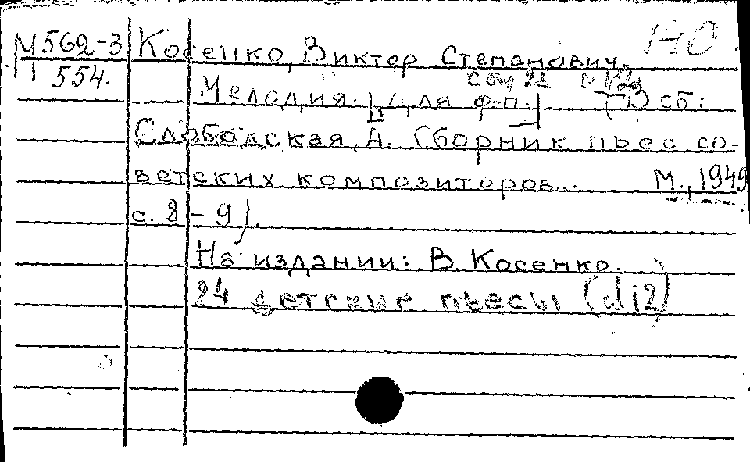 М 562-3 Косенко, Виктор Степанович.
554.
Мелодия. [Для ф.п.] (В сб:
Слободская, А. Сборник пьес со-
ветских композиторов... М., 1949
с. 8-9).
На издании: В. Косенко.
24 детские пьесы